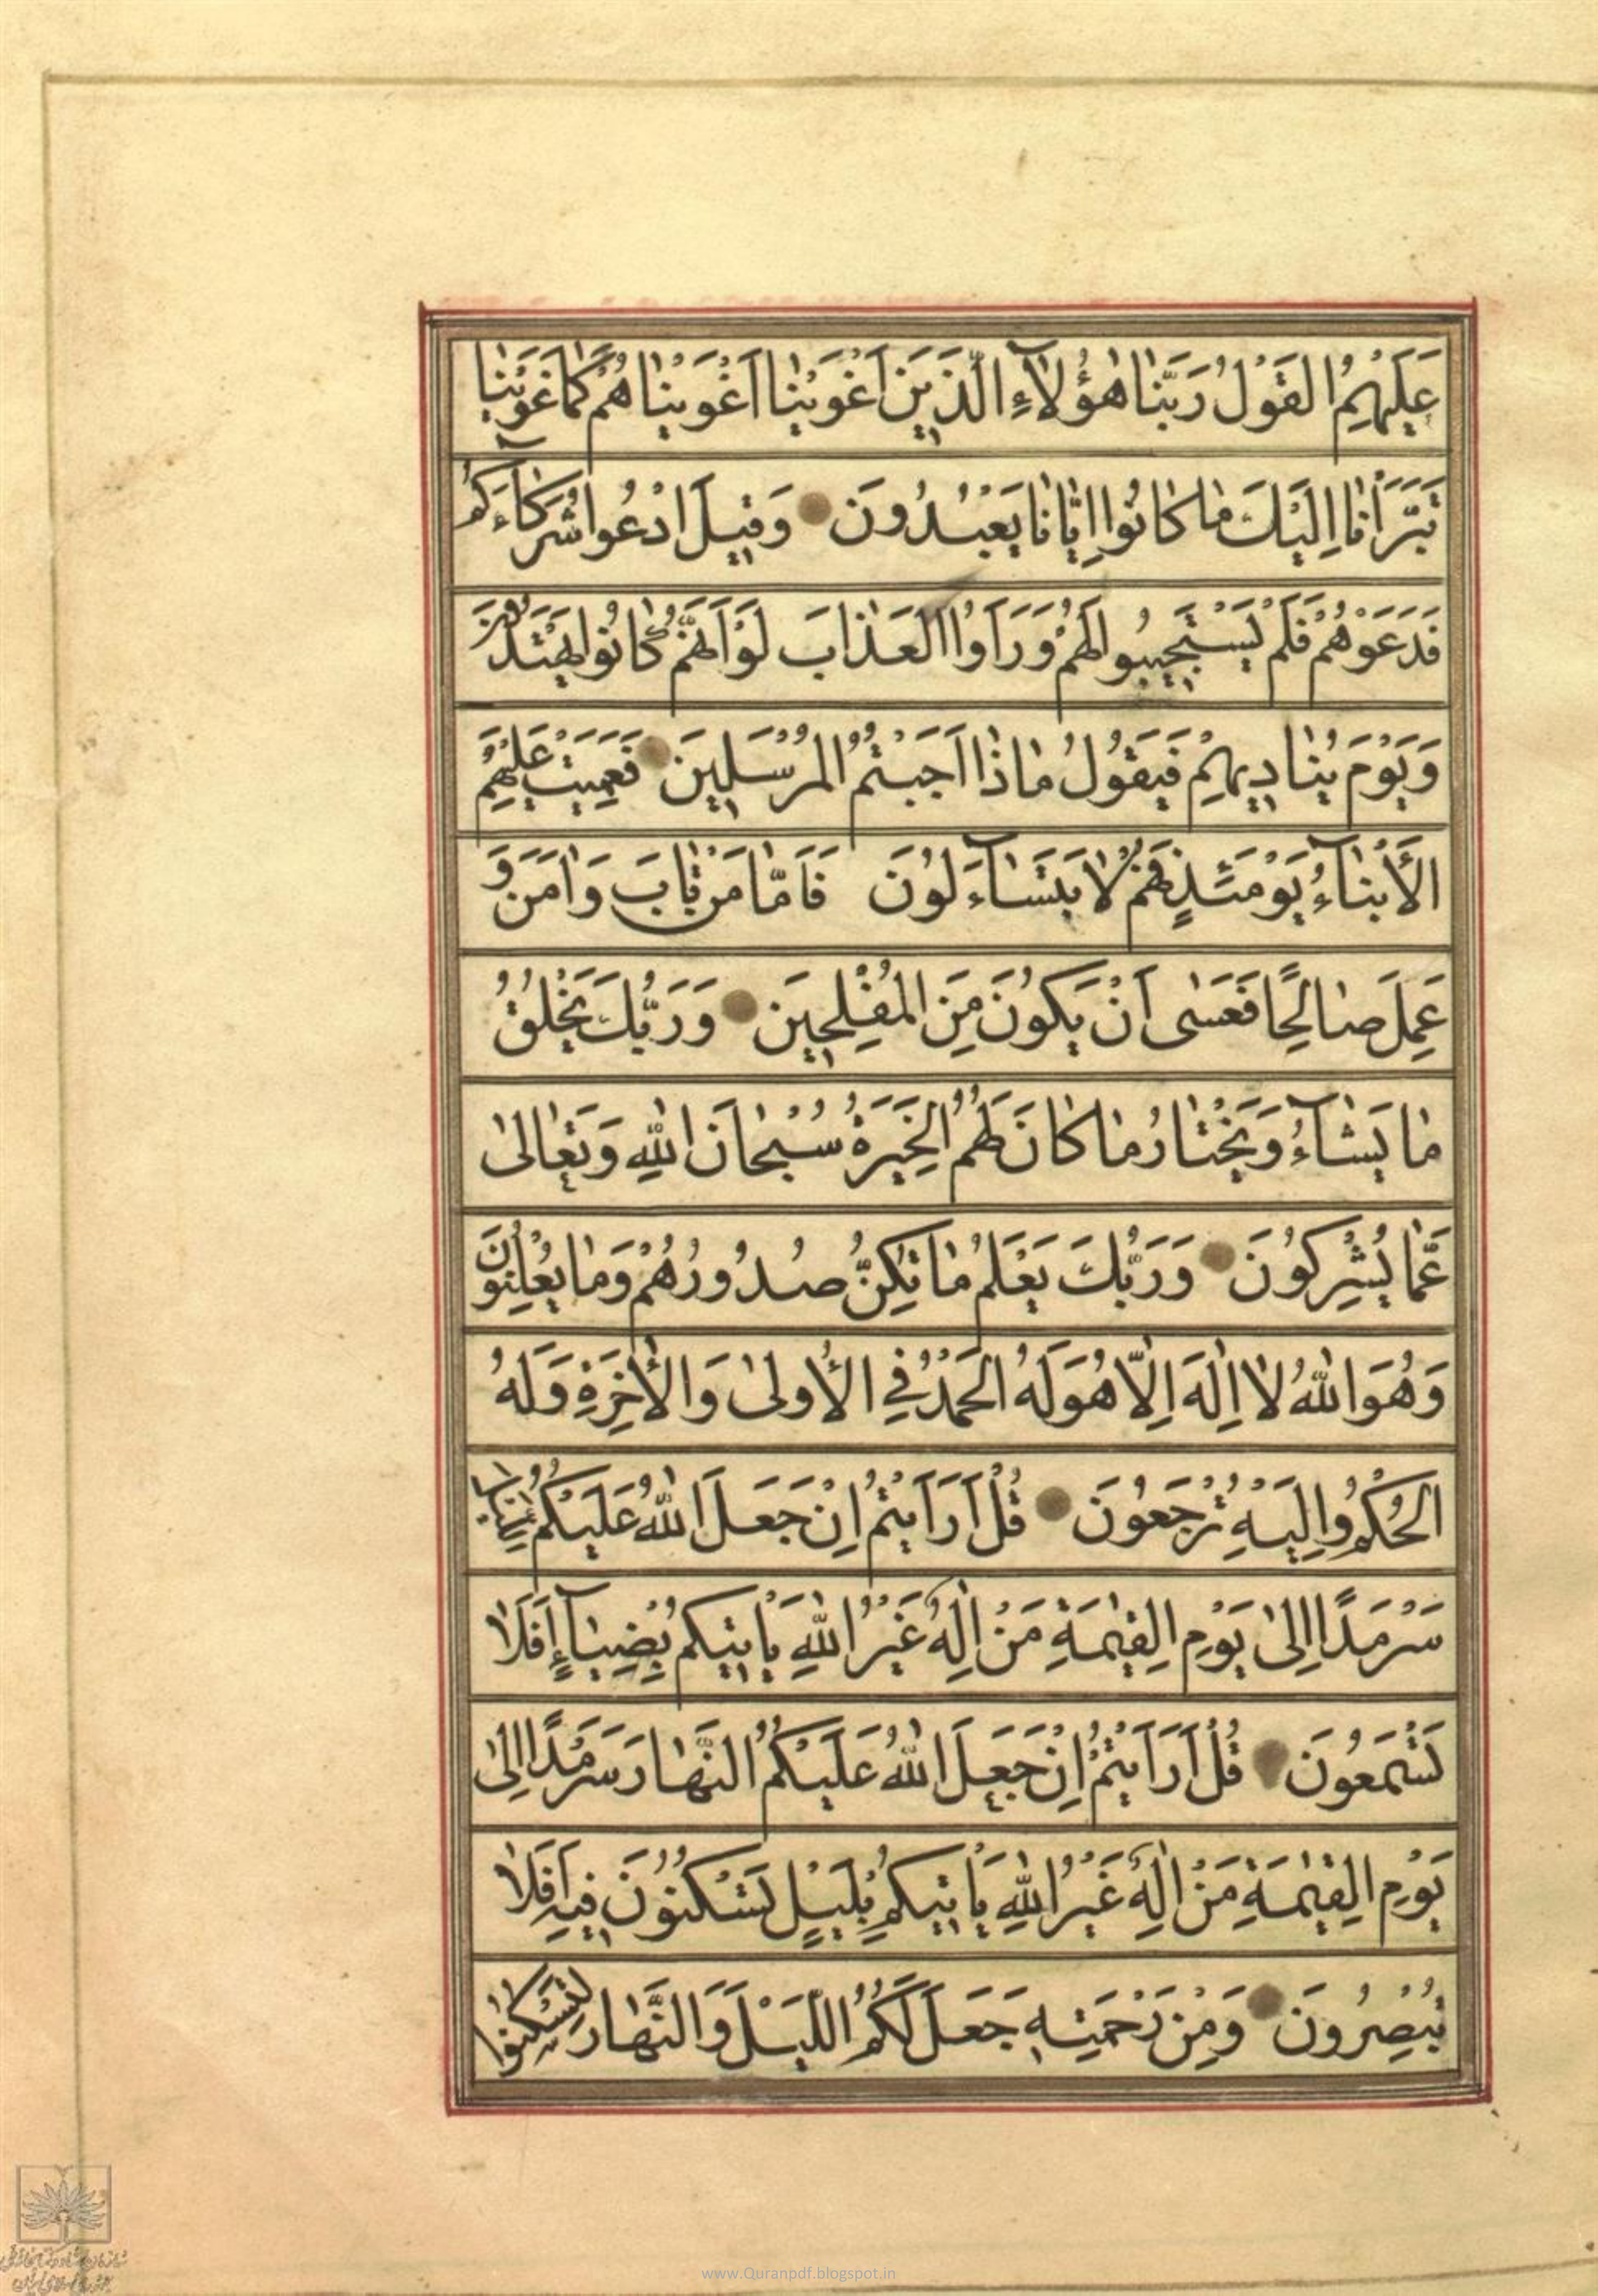 عَلَيْهِمُ القَوْلُ رَبَّنَا هٰؤُلَآءِ الَّذِينَ اَغْوَيْنَا اَغْوَيْنَاهُمْ كَمَا غَوَيْنَا
تَبَرَّاْنَا اِلَيْكَ مَا كَانُوا اِيَّانَا يَعْبُدُونَ وَقِيلَ ادْعُوا شُرَكَآءَكُمْ
فَدَعَوْهُمْ فَلَمْ يَسْتَجِيبُوا لَهُمْ وَرَاَوُا العَذَابَ لَوْ اَنَّهُمْ كَانُوا يَهْتَدُونَ
وَيَوْمَ يُنَادِيهِمْ فَيَقُولُ مَاذَا اَجَبْتُمُ المُرْسَلِينَ فَعَمِيَتْ عَلَيْهِمُ
الْأَنْبَآءُ يَوْمَئِذٍ فَهُمْ لَا يَتَسَآءَلُونَ فَاَمَّا مَنْ تَابَ وَاٰمَنَ وَ
عَمِلَ صَالِحًا فَعَسٰى اَنْ يَكُونَ مِنَ المُفْلِحِينَ وَرَبُّكَ يَخْلُقُ
مَا يَشَآءُ وَيَخْتَارُ مَا كَانَ لَهُمُ الخِيَرَةُ سُبْحَانَ اللّٰهِ وَتَعَالٰى
عَمَّا يُشْرِكُونَ وَرَبُّكَ يَعْلَمُ مَا تُكِنُّ صُدُورُهُمْ وَمَا يُعْلِنُونَ
وَهُوَ اللّٰهُ لَا اِلٰهَ اِلَّا هُوَ لَهُ الحَمْدُ فِي الْأُولٰى وَالْأٰخِرَةِ وَلَهُ
الحُكْمُ وَاِلَيْهِ تُرْجَعُونَ قُلْ اَرَاَيْتُمْ اِنْ جَعَلَ اللّٰهُ عَلَيْكُمُ
سَرْمَدًا اِلٰى يَوْمِ القِيٰمَةِ مَنْ اِلٰهٌ غَيْرُ اللّٰهِ يَاْتِيكُمْ بِضِيَآءٍ اَفَلَا
تَسْمَعُونَ قُلْ اَرَاَيْتُمْ اِنْ جَعَلَ اللّٰهُ عَلَيْكُمُ النَّهَارَ سَرْمَدًا اِلٰى
يَوْمِ القِيٰمَةِ مَنْ اِلٰهٌ غَيْرُ اللّٰهِ يَاْتِيكُمْ بِلَيْلٍ تَسْكُنُونَ فِيهِ اَفَلَا
تُبْصِرُونَ وَمِنْ رَحْمَتِهِ جَعَلَ لَكُمُ اللَّيْلَ وَالنَّهَارَ لِتَسْكُنُوا
www.Quranpdf.blogspot.in